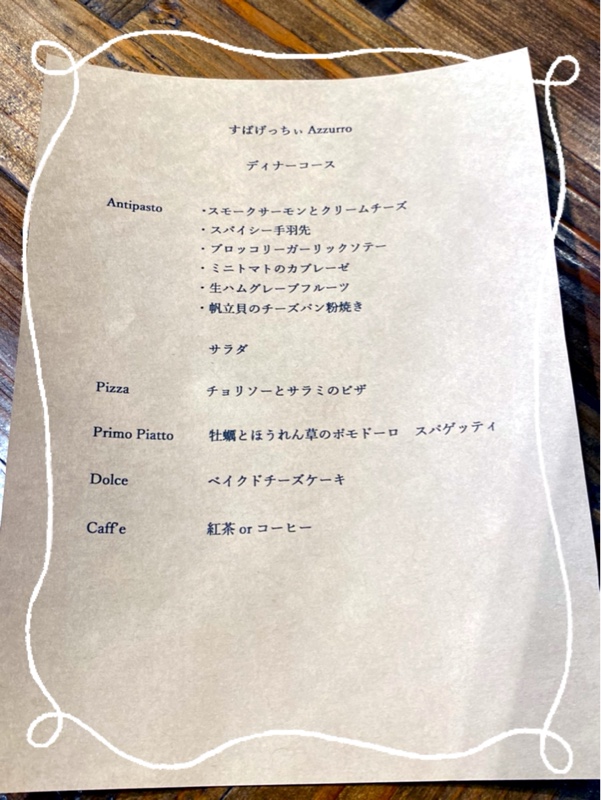 すぱげっちぃ Azzurro
ディナーコース
Antipasto ・スモークサーモンとクリームチーズ
・スパイシー手羽先
・ブロッコリーガーリックソテー
・ミニトマトのカプレーゼ
・生ハムグレープフルーツ
・帆立貝のチーズパン粉焼き
サラダ
Pizza チョリソーとサラミのピザ
Primo Piatto 牡蠣とほうれん草のポモドーロ スパゲッティ
Dolce ベイクドチーズケーキ
Caff'e 紅茶 or コーヒー